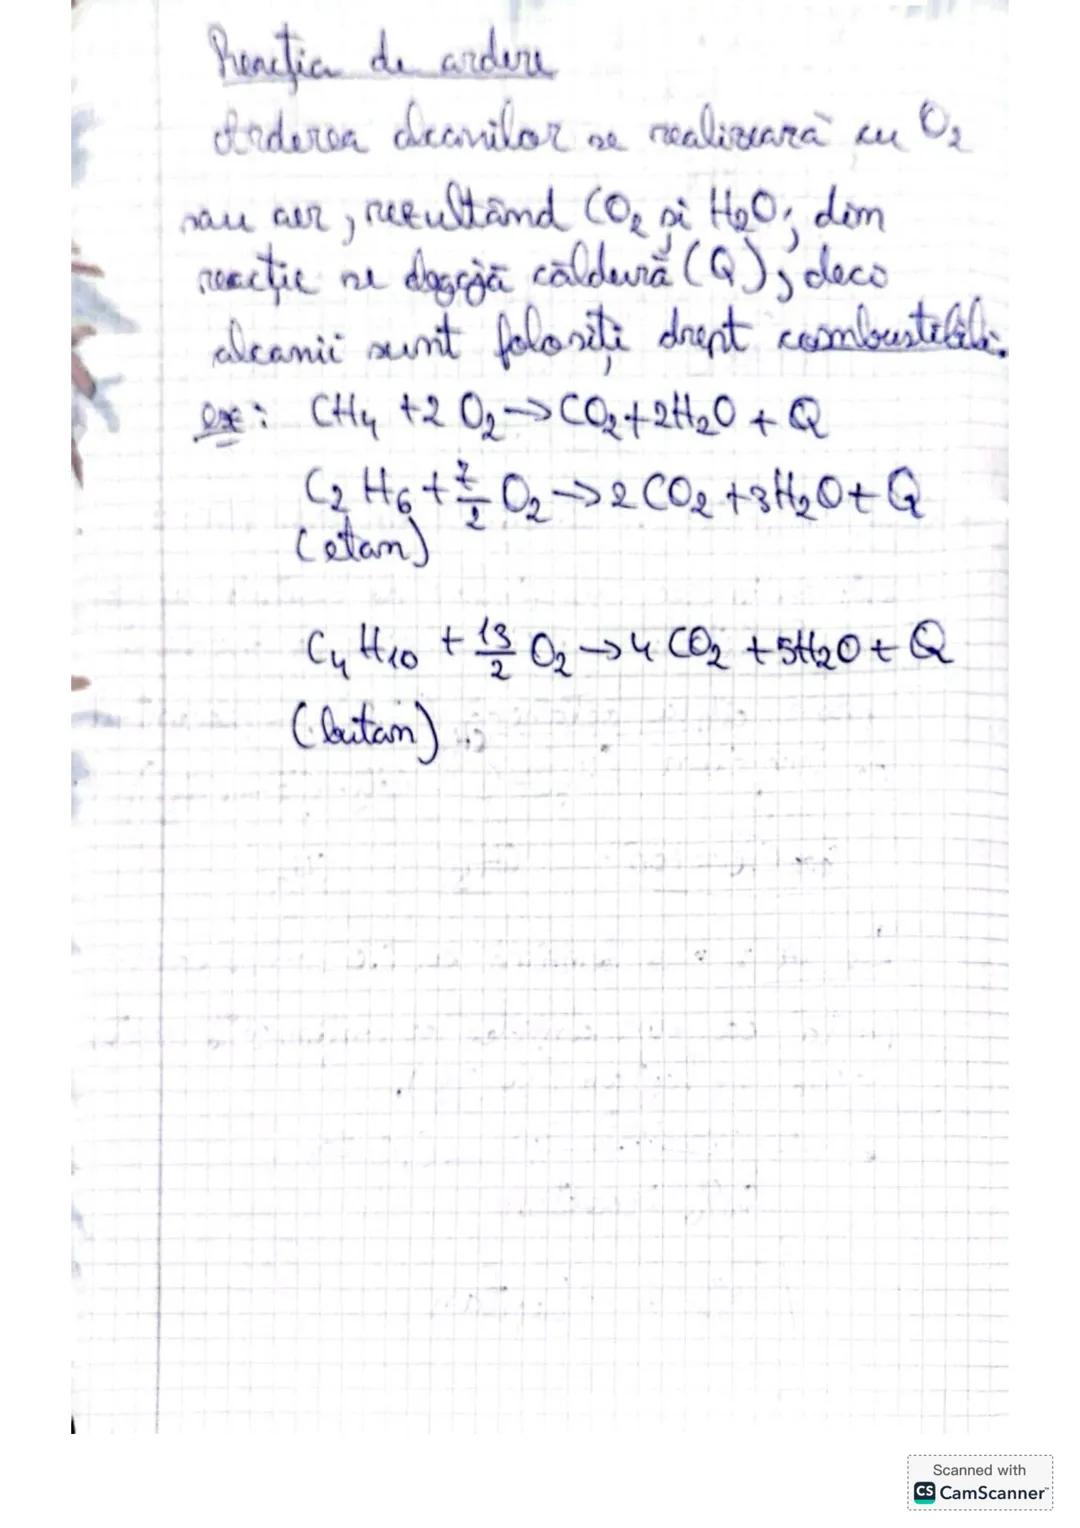 Reacția de ardere
Arderea alcanilor se realizează cu O₂
sau aer, rezultând CO₂ și H₂O; din
reacție se degajă căldură (Q), deci
alcanii sunt folosiți drept combustibili.
ex: CH₄ + 2 O₂ → CO₂ + 2H₂O + Q
C₂H₆ + 7/2 O₂ → 2 CO₂ + 3H₂O + Q
(etan)
C₄H₁₀ + 13/2 O₂ → 4 CO₂ + 5H₂O + Q
(butan)
Scanned with
CS CamScanner™